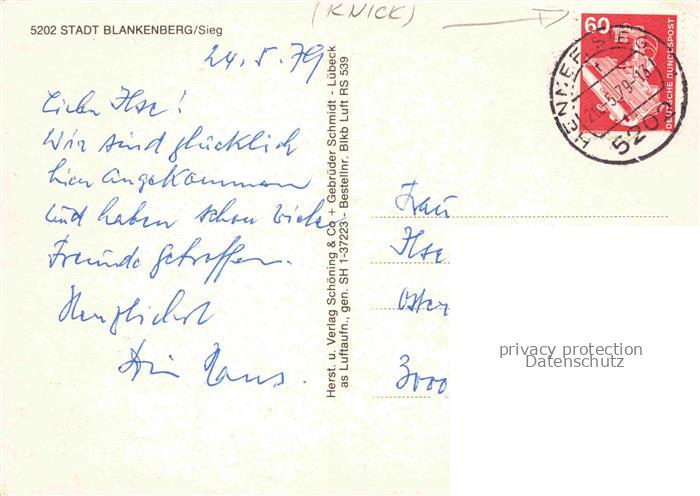 (KNICK)
5202 STADT BLANKENBERG/Sieg
24.5.79
Liebe Ilse!
Wir sind glücklich
hier angekommen
und haben schon viele
Freunde getroffen.
Herzlichst
Dein Hans.
Herst. u. Verlag Schöning & Co + Gebrüder Schmidt - Lübeck
as Luftaufn., gen. SH 1-37223 - Bestellnr. Blkb Luft RS 539
60
DEUTSCHE BUNDESPOST
HENNEF, SIEG
5202
Frau
Ilse
Oster
3000
privacy protection
Datenschutz